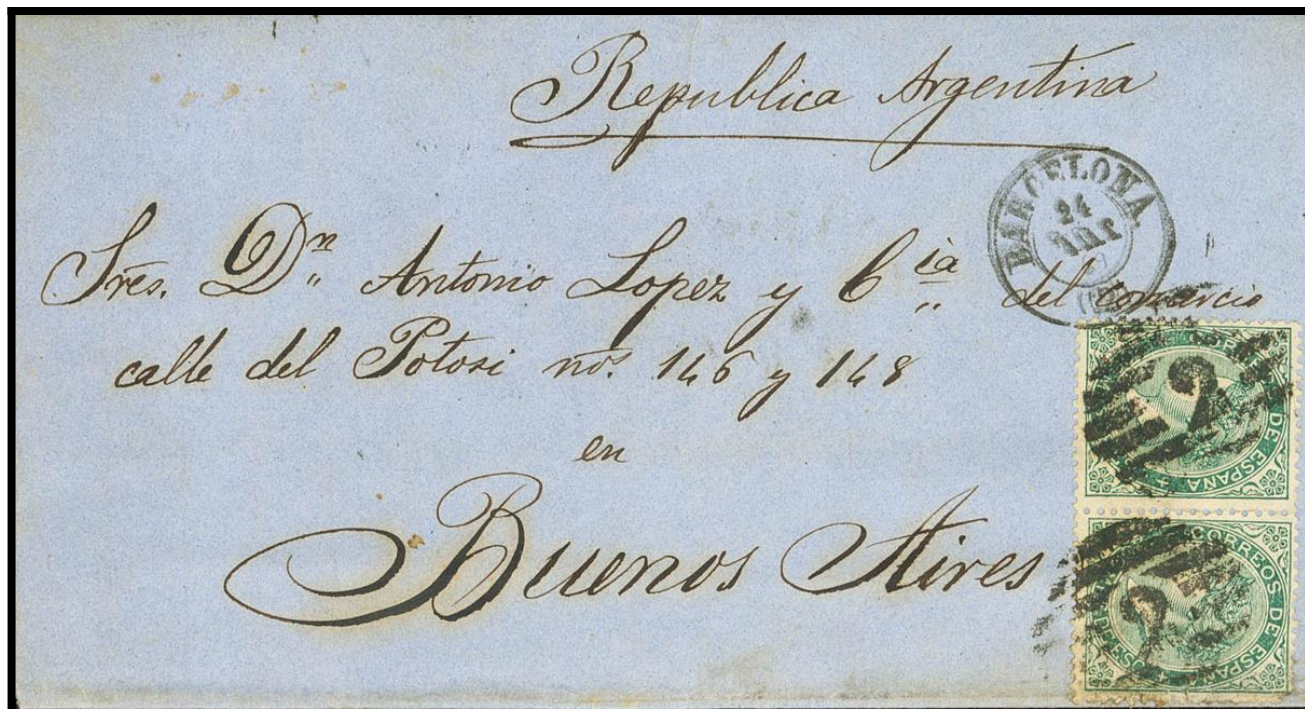 Republica Argentina
BARCELONA
24
Sres. Dn Antonio Lopez y Cia del comercio
calle del Potosi nos. 146 y 148
en
Buenos Aires
2
CORREOS DE ESPAÑA
2